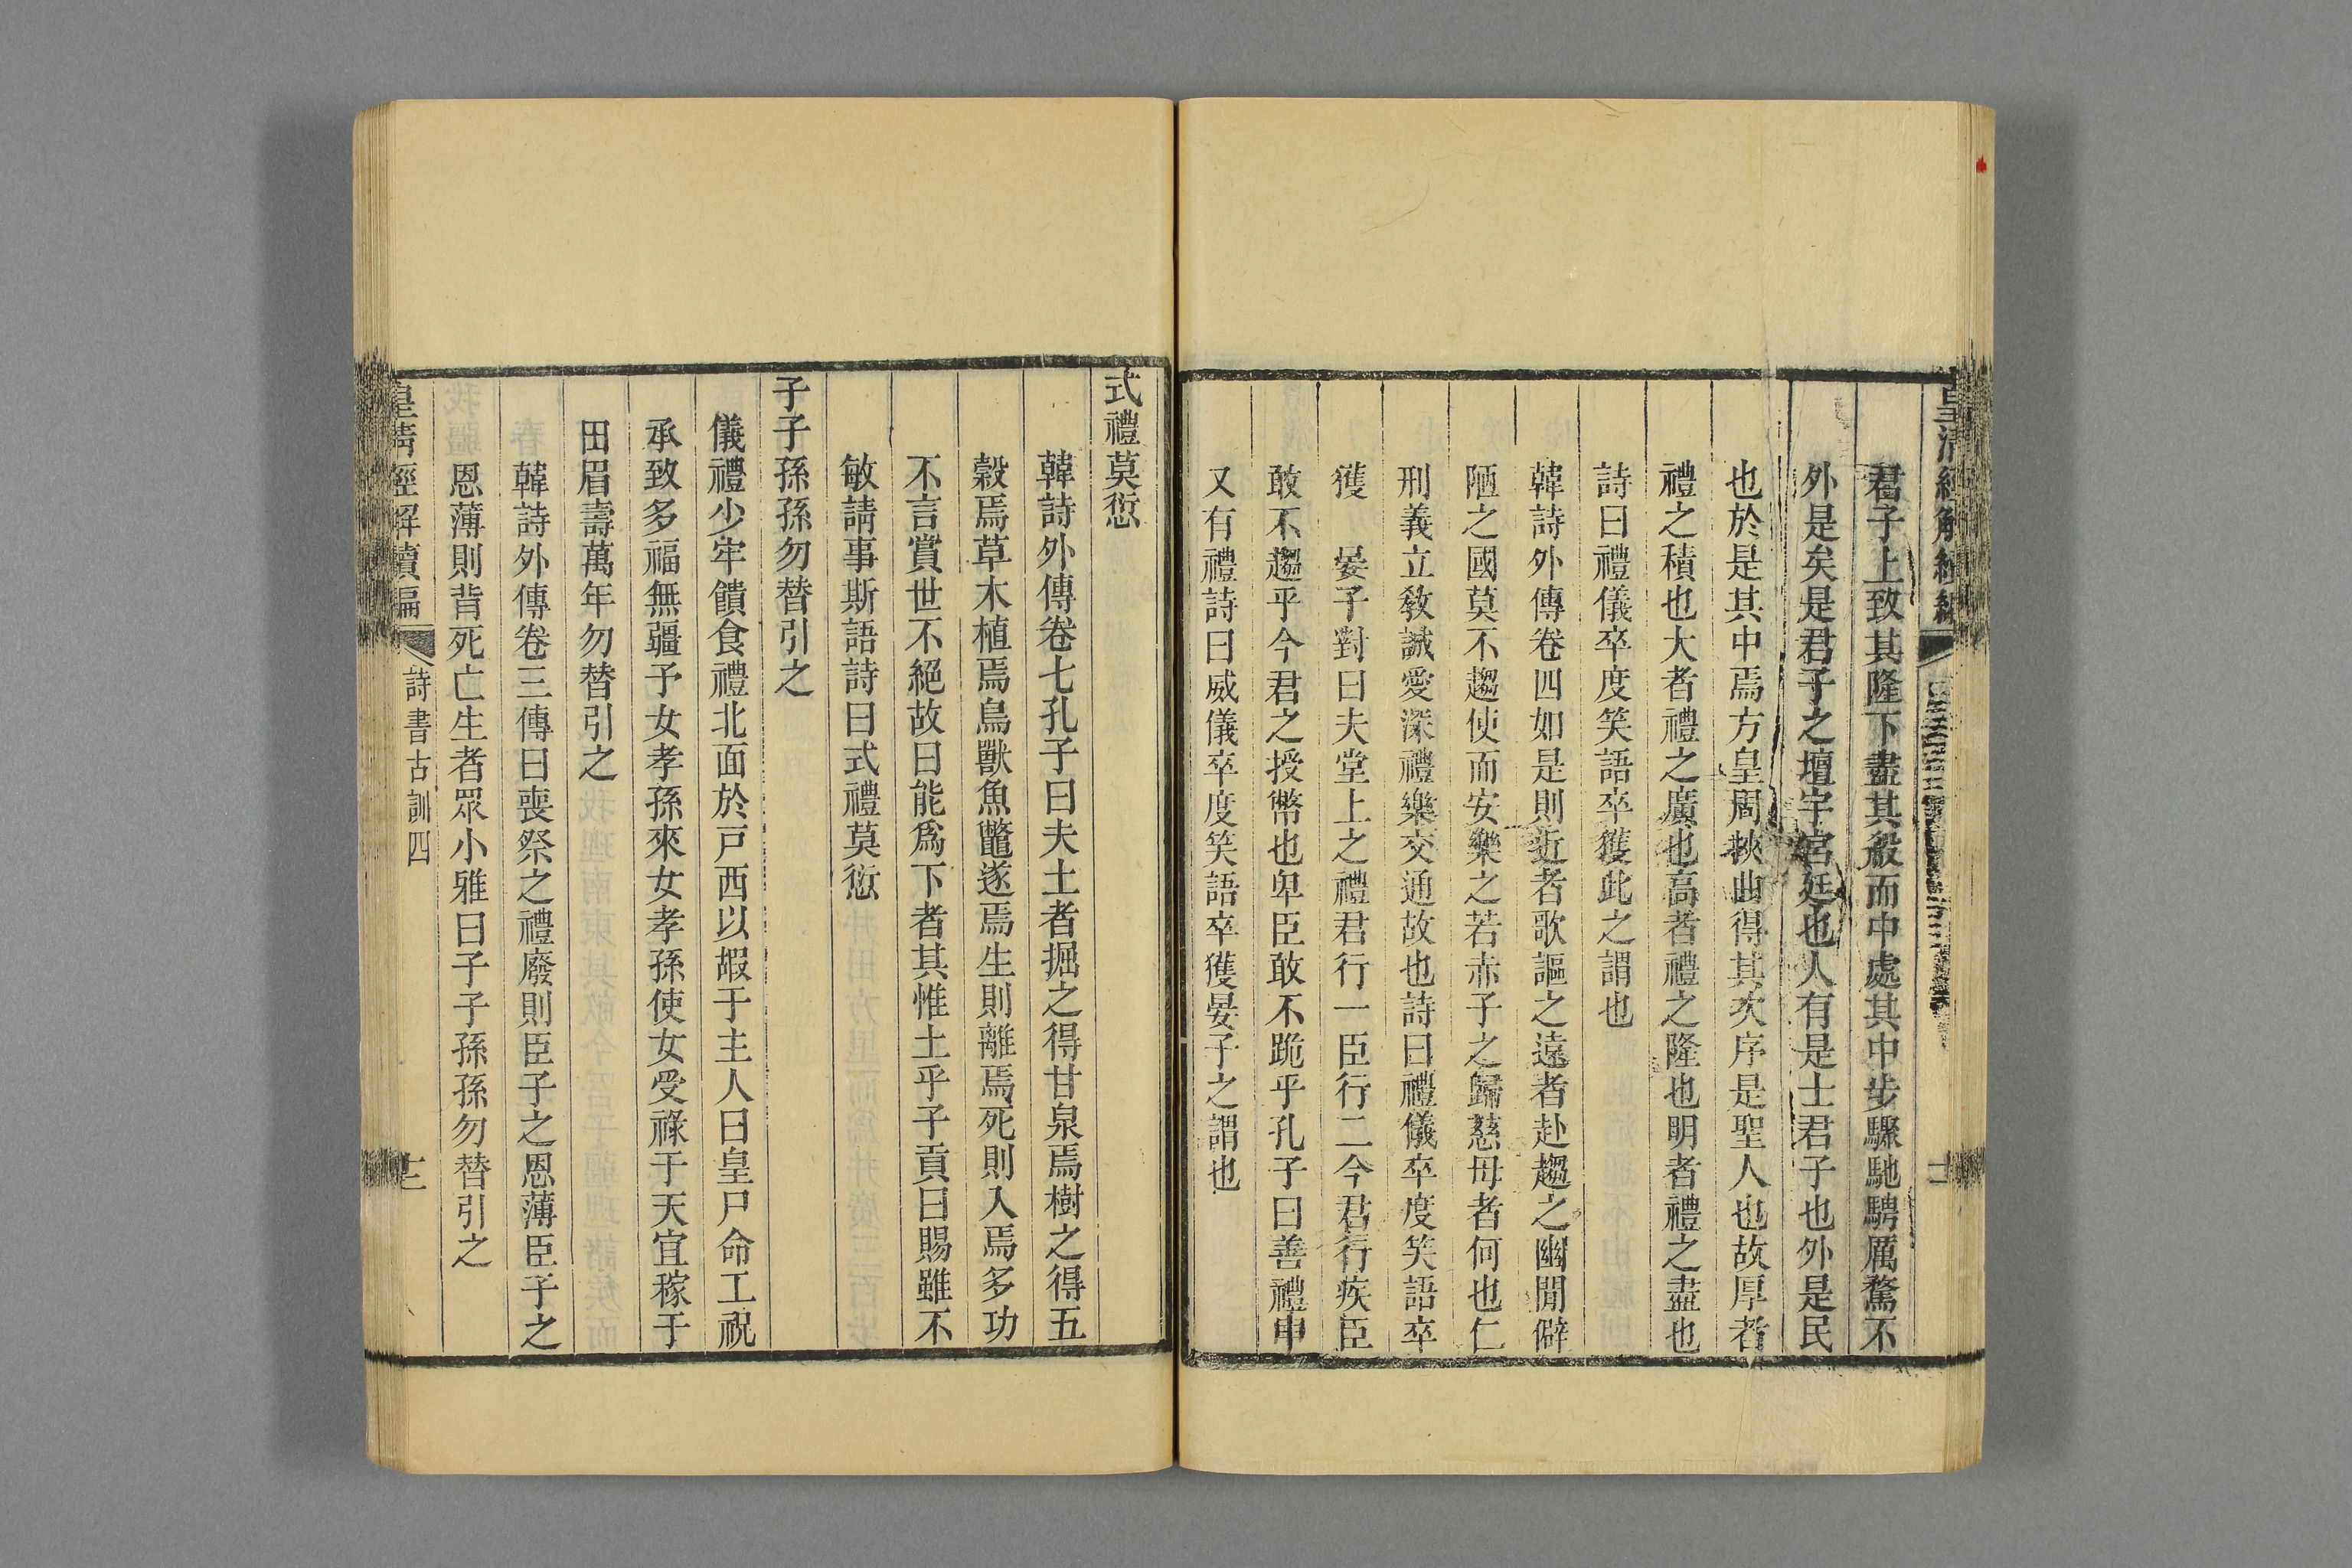 皇清經解續編
君子上致其隆下盡其殺而中處其中步驟馳騁厲騖不
外是矣是君子之壇宇宮廷也人有是士君子也外是民
也於是其中焉方皇周挾曲得其次序是聖人也故厚者
禮之積也大者禮之廣也高者禮之隆也明者禮之盡也
詩曰禮儀卒度笑語卒獲此之謂也
韓詩外傳卷四如是則近者歌謳之遠者赴趨之幽閒僻
陋之國莫不趨使而安樂之若赤子之歸慈母者何也仁
刑義立敎誠愛深禮樂交通故也詩曰禮儀卒度笑語卒
獲　晏子對曰夫堂上之禮君行一臣行二今君行疾臣
敢不趨乎今君之授幣也卑臣敢不跪乎孔子曰善禮中
又有禮詩曰威儀卒度笑語卒獲晏子之謂也
式禮莫愆
韓詩外傳卷七孔子曰夫土者掘之得甘泉焉樹之得五
穀焉草木植焉鳥獸魚鼈遂焉生則離焉死則入焉多功
不言賞世不絕故曰能爲下者其惟土乎子貢曰賜雖不
敏請事斯語詩曰式禮莫愆
子子孫孫勿替引之
儀禮少牢饋食禮北面於戸西以嘏于主人曰皇尸命工祝
承致多福無疆予女孝孫來女孝孫使女受祿于天宜稼于
田眉壽萬年勿替引之
韓詩外傳卷三傳曰喪祭之禮廢則臣子之恩薄臣子之
恩薄則背死亡生者眾小雅曰子子孫孫勿替引之
皇清經解續編
詩書古訓四
十二